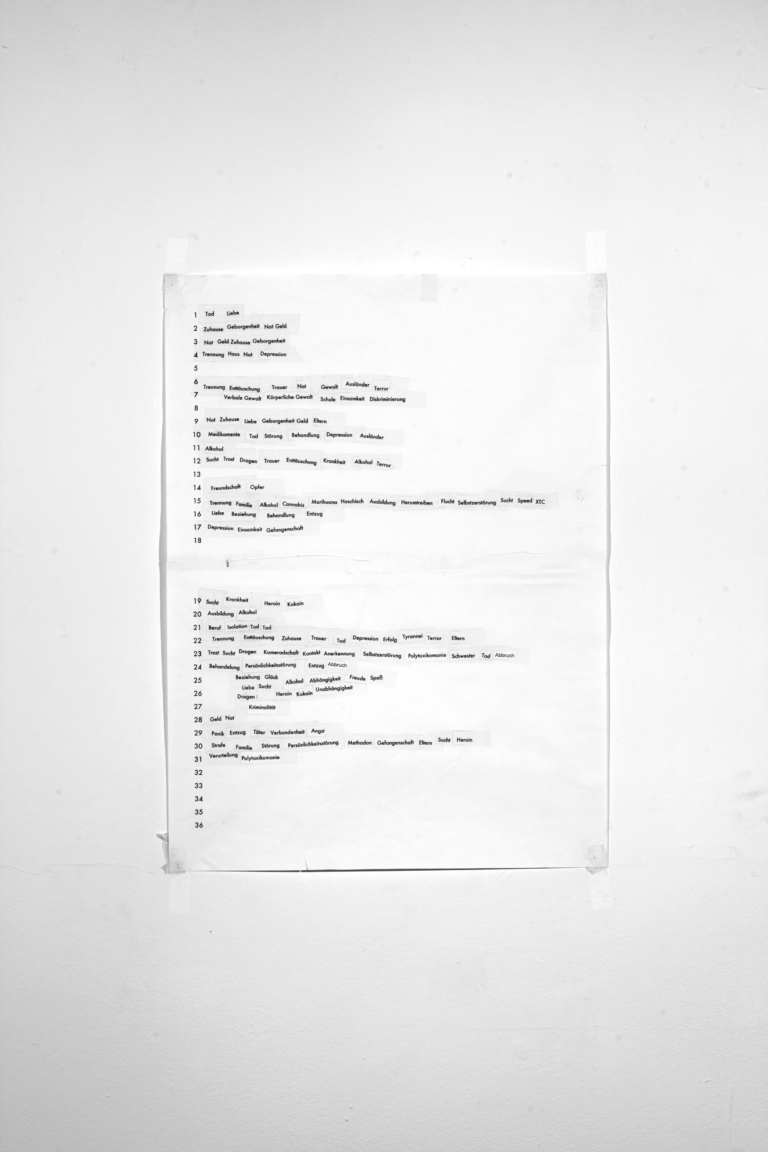 1 Tod Liebe
2 Zuhause Geborgenheit Not Geld
3 Not Geld Zuhause Geborgenheit
4 Trennung Hass Not Depression
5
6 Trennung Enttäuschung Trauer Not Gewalt Ausländer Terror
7 Verbale Gewalt Körperliche Gewalt Schule Einsamkeit Diskriminierung
8
9 Not Zuhause Liebe Geborgenheit Geld Eltern
10 Medikamente Tod Störung Behandlung Depression Ausländer
11 Alkohol
12 Sucht Trost Drogen Trauer Enttäuschung Krankheit Alkohol Terror
13
14 Freundschaft Opfer
15 Trennung Familie Alkohol Cannabis Marihuana Haschisch Ausbildung Herumtreiben Flucht Selbstzerstörung Sucht Speed XTC
16 Liebe Beziehung Behandlung Entzug
17 Depression Einsamkeit Gefangenschaft
18
19 Sucht Krankheit Heroin Kokain
20 Ausbildung Alkohol
21 Beruf Isolation Tod Tod
22 Trennung Enttäuschung Zuhause Trauer Tod Depression Erfolg Tyrannei Terror Eltern
23 Trost Sucht Drogen Kameradschaft Kontakt Anerkennung Selbstzerstörung Polytoxikomanie Schwester Tod Abbruch
24 Behandlung Persönlichkeitsstörung Entzug Abbruch
25 Beziehung Glück Alkohol Abhängigkeit Freude Spaß
26 Liebe Sucht Drogen Heroin Kokain Unabhängigkeit
27 Kriminalität
28 Geld Not
29 Panik Entzug Täter Verbundenheit Angst
30 Strafe Familie Störung Persönlichkeitsstörung Methadon Gefangenschaft Eltern Sucht Heroin
31 Verurteilung Polytoxikomanie
32
33
34
35
36